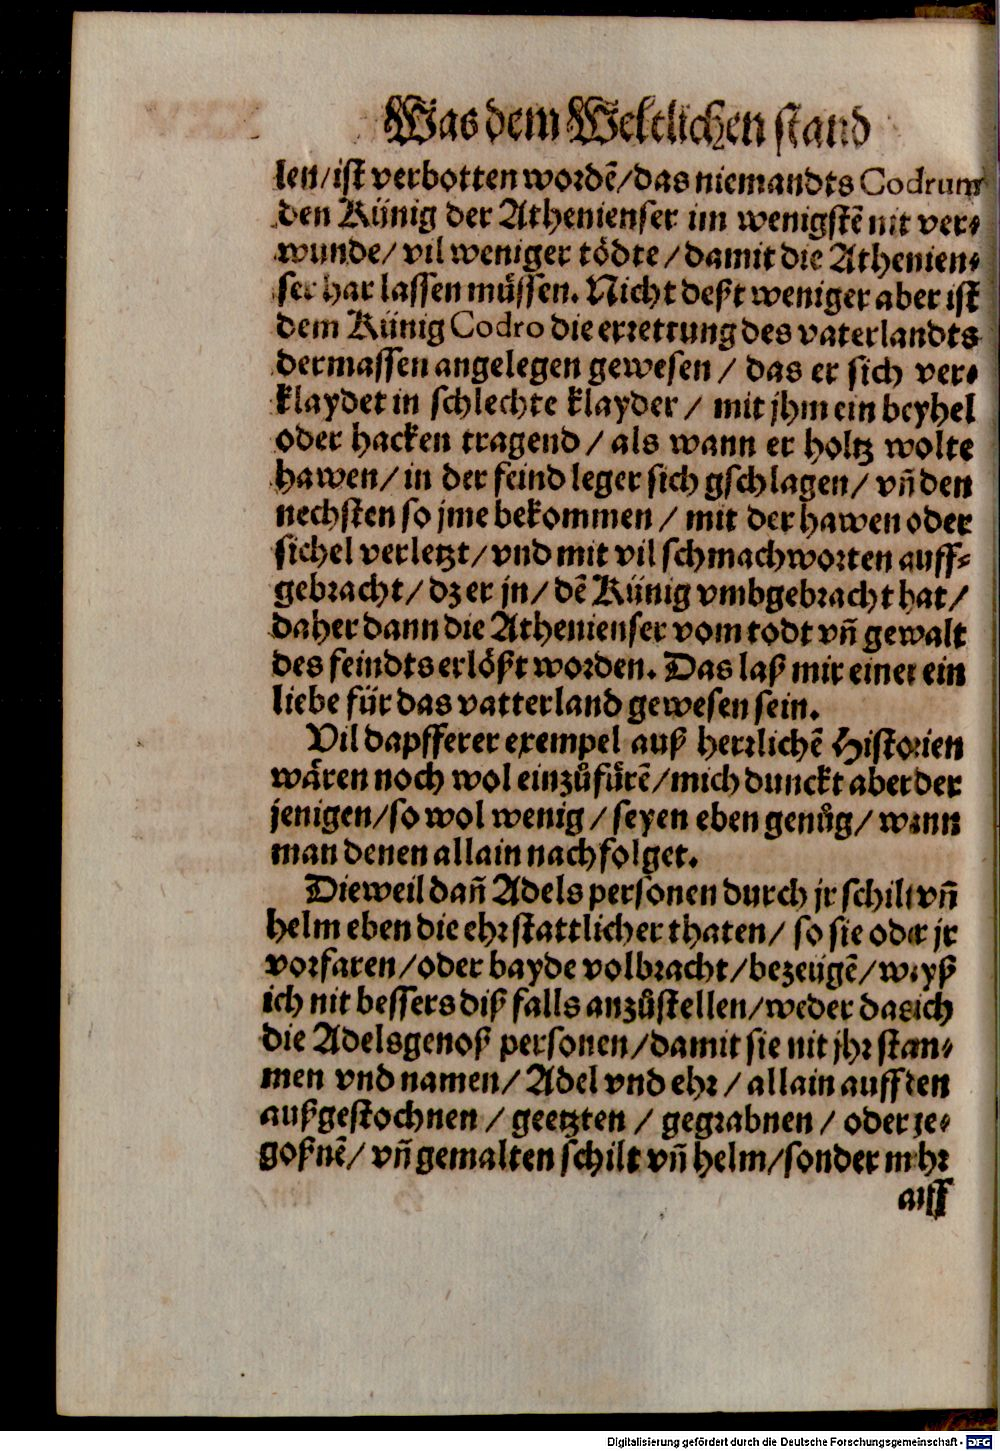 Was dem Weltlichen stand
len/ist verbotten wordē/das niemandts Codrum
den Künig der Athenienser im wenigstē nit ver⸗
wunde/ vil weniger tödte/ damit die Athenien⸗
ser har lassen müssen. Nicht deßt weniger aber ist
dem Künig Codro die errettung des vaterlandts
dermassen angelegen gewesen / das er sich ver⸗
klaydet in schlechte klayder / mit jhm ein beyhel
oder hacken tragend / als wann er holtz wolte
hawen/ in der feind leger sich gschlagen/ vñ den
nechsten so jme bekommen / mit der hawen oder
sichel verletzt/vnd mit vil schmachworten auff⸗
gebracht/ dz er jn/ dē Künig vmbgebracht hat/
daher dann die Athenienser vom todt vñ gewalt
des feindts erlößt worden. Das laß mir einer ein
liebe für das vatterland gewesen sein.
Vil dapfferer exempel auß herrlichē Historien
wären noch wol einzůfürē/mich dunckt aber der
jenigen/so wol wenig / seyen eben genůg/ wann
man denen allain nachfolget.
Dieweil dañ Adels personen durch jr schilt vñ
helm eben die ehr stattlicher thaten/ so sie oder jr
vorfaren/oder bayde volbracht/bezeügē/wayß
ich nit bessers diß falls anzůstellen/weder das ich
die Adelsgenoß personen/damit sie nit jhr stam⸗
men vnd namen/ Adel vnd ehr / allain auff den
außgestochnen / geetzten / gegrabnen / oder ge⸗
goßnē/ vñ gemalten schilt vñ helm/sonder mehr
auff
Digitalisierung gefördert durch die Deutsche Forschungsgemeinschaft - DFG